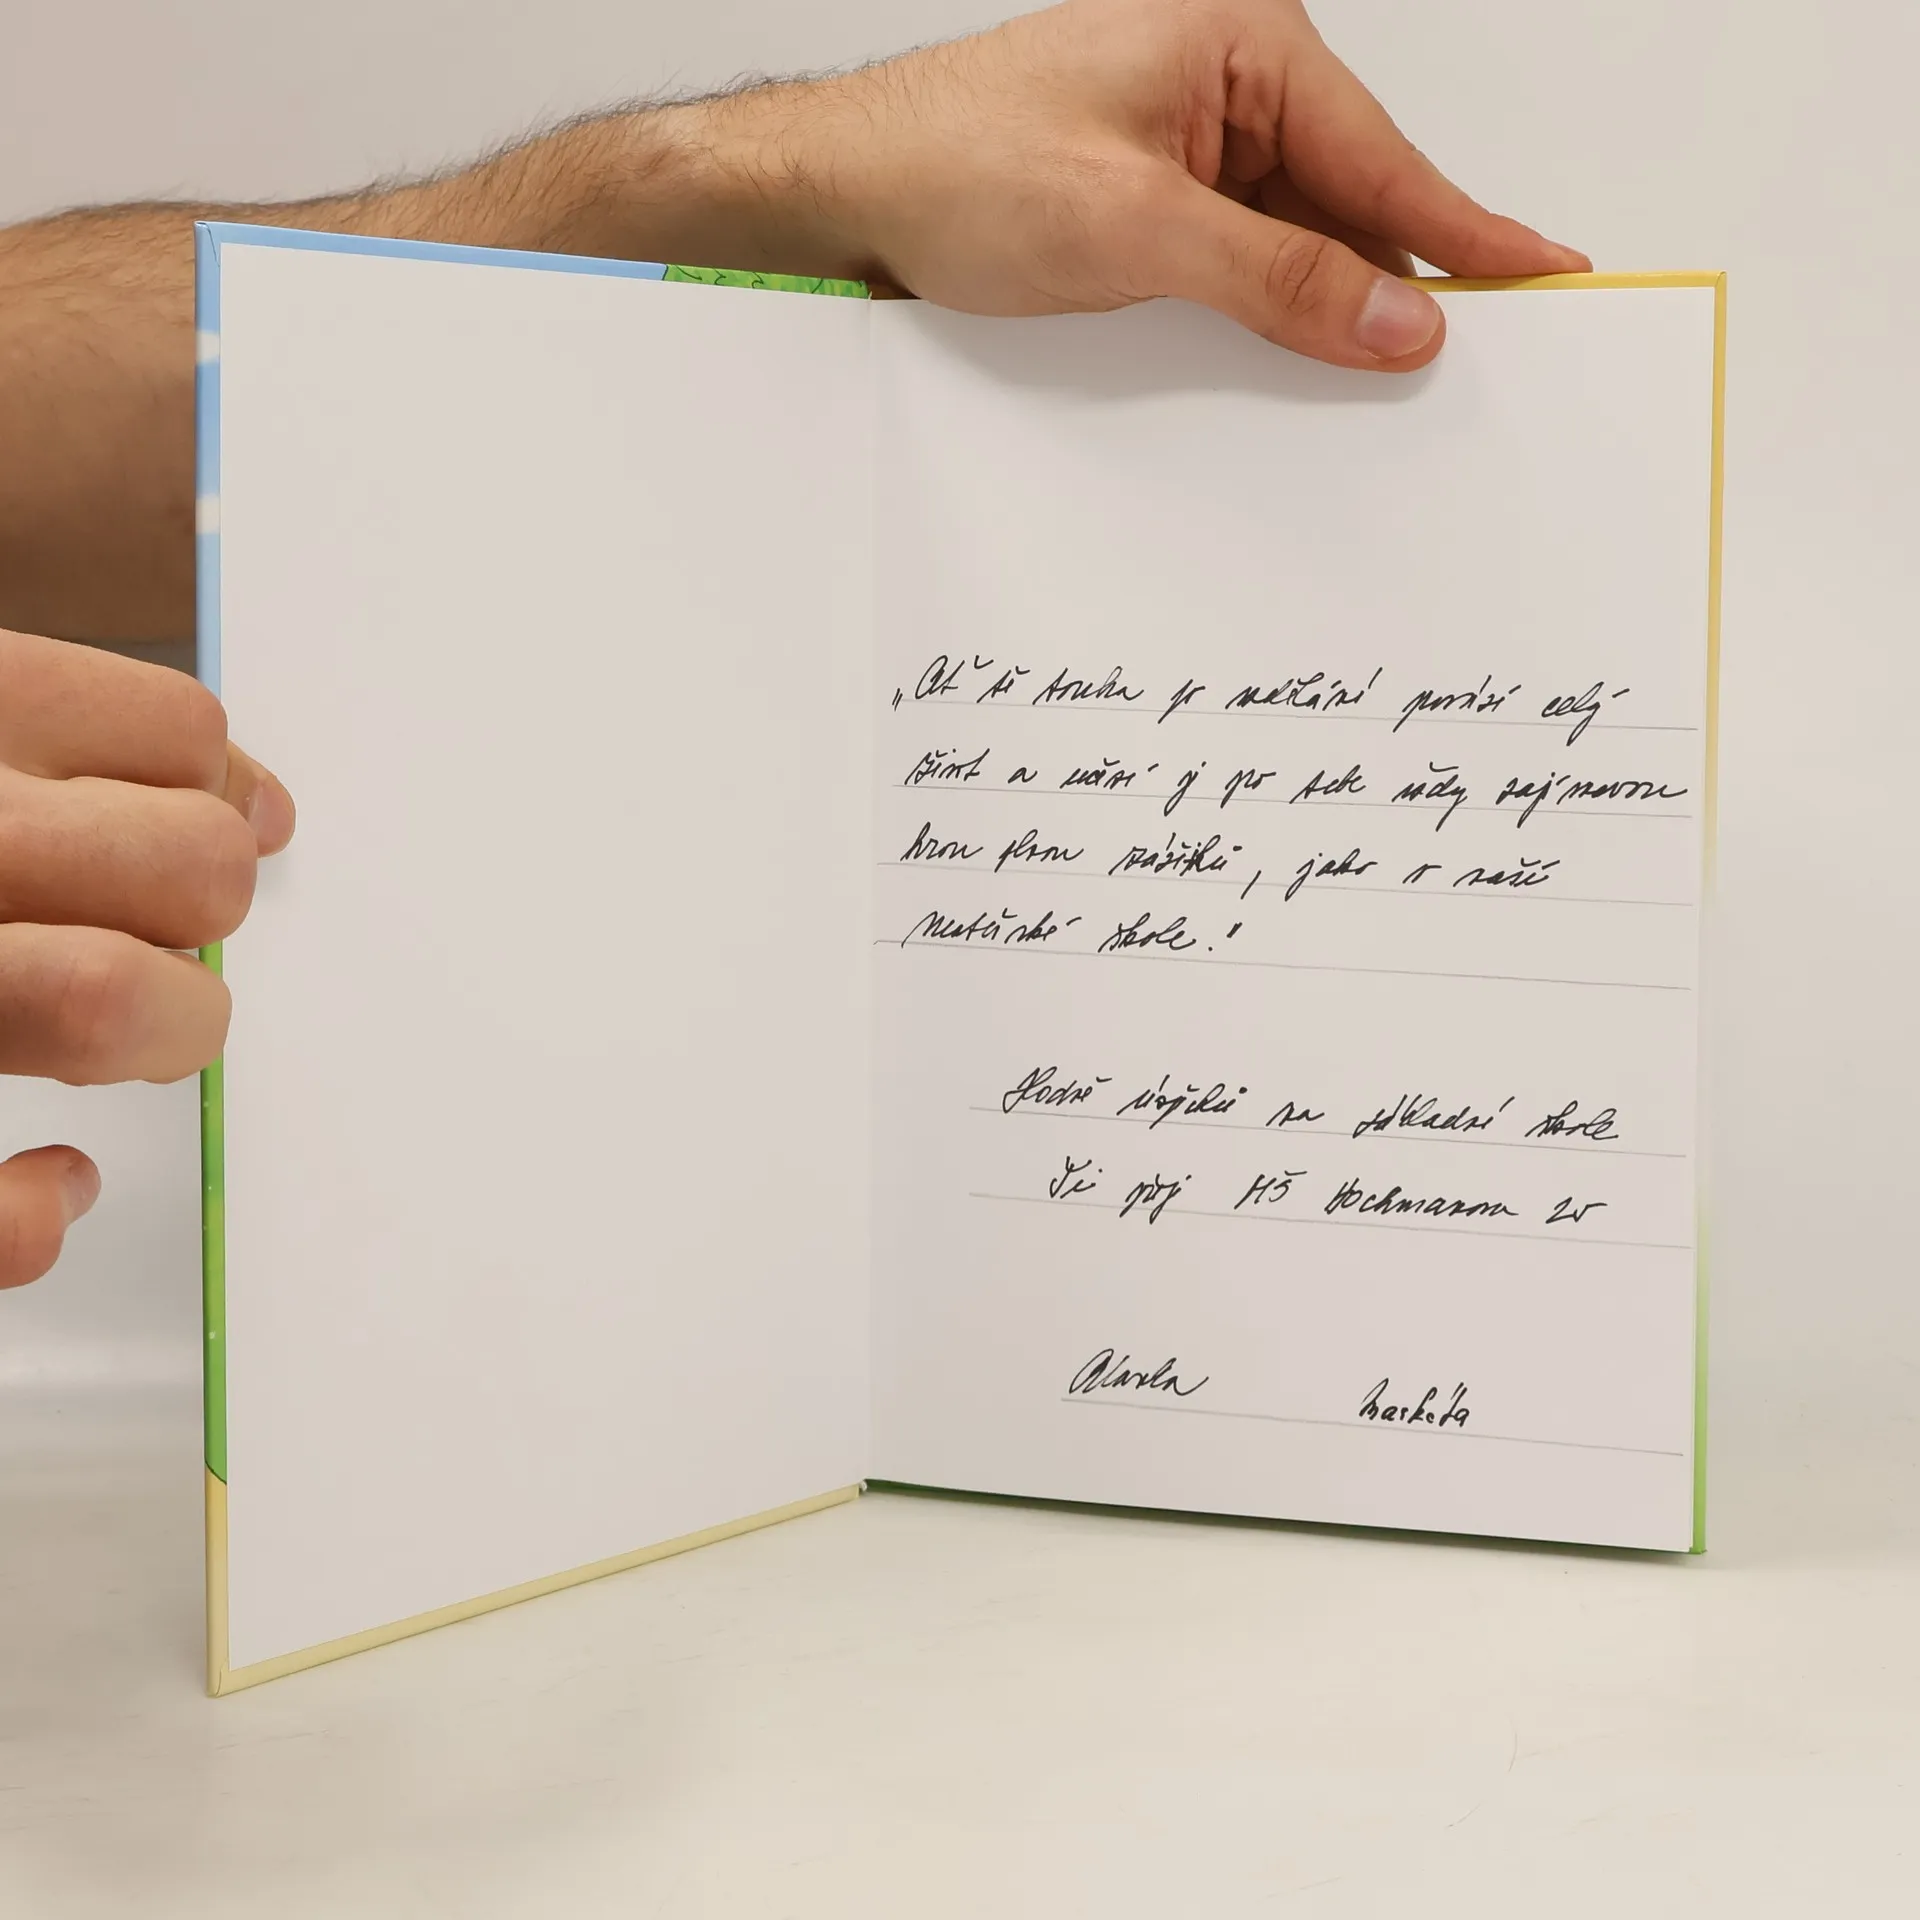 „Ať tě touha po vzdělání provází celý
život a učení je pro tebe vždy zajímavou
hrou plnou zážitků, jako v naší
mateřské škole."
Hodně úspěchů na základní škole
Ti přejí MŠ Hochmanova 25
Markéta